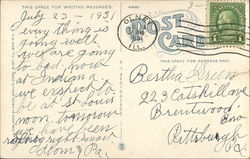 THIS SPACE FOR WRITING MESSAGES.
July 23 - 1931
every thing is
going well
we are going
to bad road
at Indiana
we expect to
be at St Louis
noon. Tomorrow
we have been
Mom & Pa.
OLNEY
ILL.
1931
POST
CARD
THIS SPACE FOR ADDRESS ONLY.
Bertha
2223 Catskill Ave
Brentwood
Boro
Pittsburgh
Pa